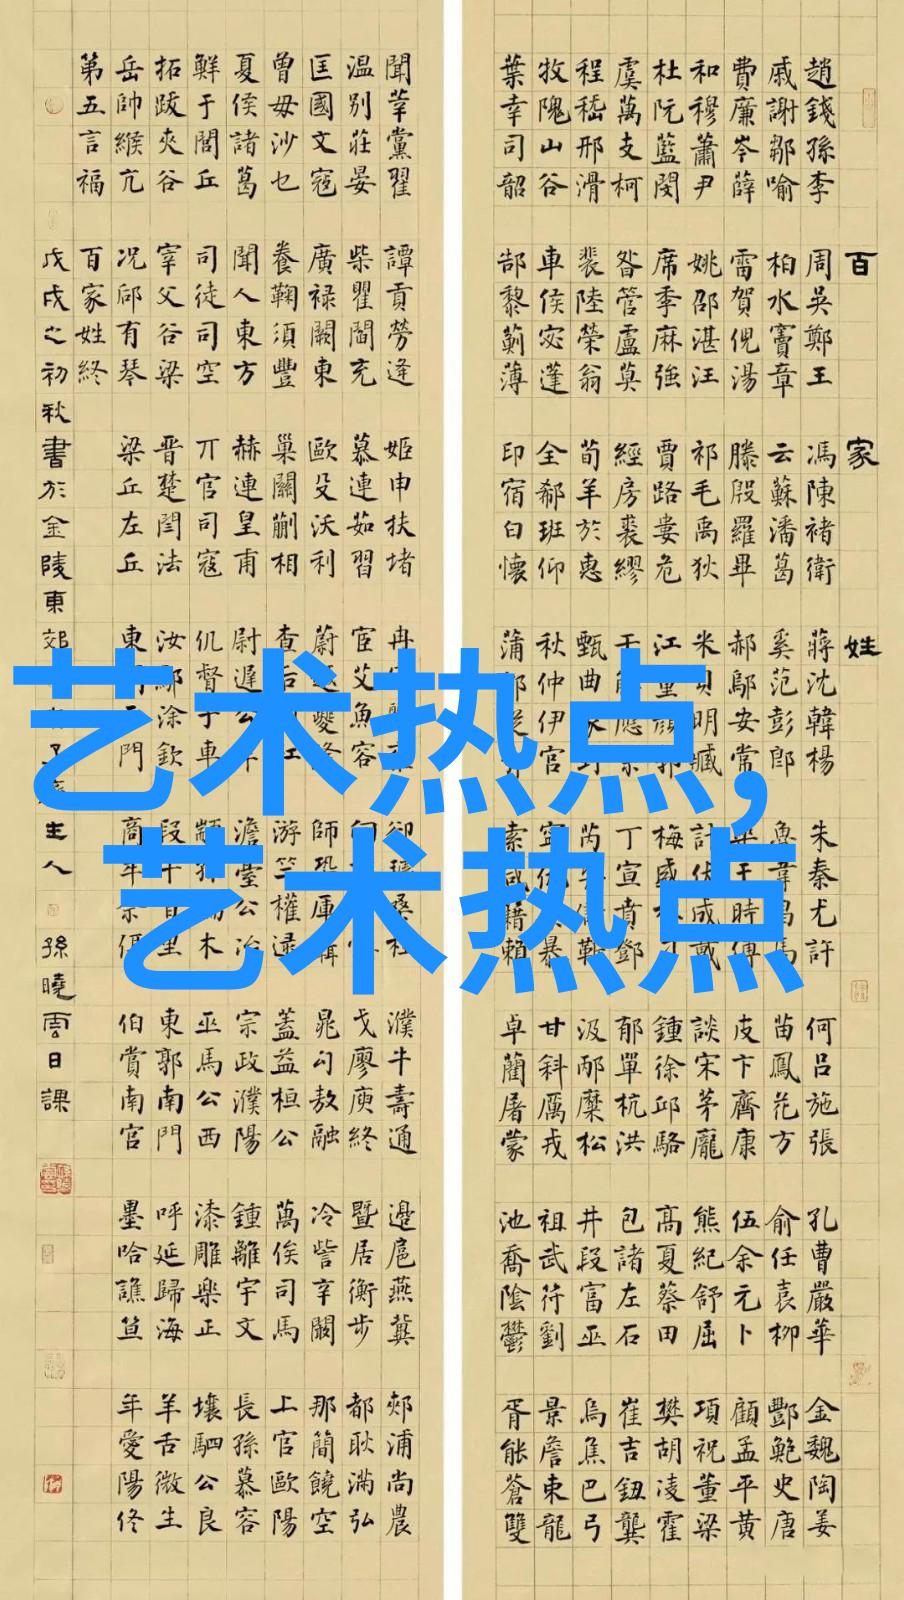 百家姓
趙錢孫李 周吳鄭王 馮陳褚衛 蔣沈韓楊 朱秦尤許 何呂施張 孔曹嚴華 金魏陶姜
戚謝鄒喻 柏水竇章 云蘇潘葛 奚范彭郎 魯韋昌馬 苗鳳花方 俞任袁柳 酆鮑史唐
費廉岑薛 雷賀倪湯 滕殷羅畢 郝鄔安常 于時傅 皮卞齊康 伍余元卜 顧孟平黃
和穆蕭尹 姚邵湛汪 祁毛禹狄 米貝明臧 計伏成戴 談宋茅龐 熊紀舒屈 項祝董梁
杜阮藍閔 席季麻強 賈路婁危 江童顏郭 梅盛 鍾徐邱駱 高夏蔡田 樊胡凌霍
虞萬支柯 昝管盧莫 經房裘繆 應 丁宣賁鄧 郁單杭洪 包諸左石 崔吉鈕龔
程嵇邢滑 裴陸榮翁 荀羊於惠 甄曲家封 芮靳 汲邴糜松 井段富巫 烏焦巴弓
牧隗山谷 車侯宓蓬 全郗班仰 秋仲伊宮 暴 甘斜厲戎 祖武符劉 景詹束龍
葉幸司韶 郜黎薊薄 印宿白懷 蒲 索咸籍賴 卓藺屠蒙 池喬陰鬱 胥能蒼雙
聞莘黨翟 譚貢勞逄 姬申扶堵 冉 卻璩桑桂 濮牛壽通 邊扈燕冀 郟浦尚農
溫別莊晏 柴瞿閻充 慕連茹習 宦艾魚容 戈廖庾終 暨居衡步 都耿滿弘
匡國文寇 廣祿闕東 歐殳沃利 蔚越夔隆 師鞏厙聶 晁勾敖融 冷訾辛闞 那簡饒空
曾毋沙乜 養鞠須豐 巢關蒯相 查后紅 游竺權逯 蓋益桓公 萬俟司馬 上官歐陽
夏侯諸葛 聞人東方 赫連皇甫 尉遲公羊 澹臺公冶 宗政濮陽 鍾離宇文 長孫慕容
鮮于閭丘 司徒司空 丌官司寇 仉督子車 顓孫端木 巫馬公西 漆雕樂正 壤駟公良
拓跋夾谷 宰父谷梁 晉楚閆法 汝鄢涂欽 段干百里 東郭南門 呼延歸海 羊舌微生
岳帥緱亢 況郈有琴 梁丘左丘 東門 商牟佘佴 伯賞南宮 墨哈譙笪 年愛陽佟
第五言福 百家姓終
戊戌之初秋書於金陵東郊 主人 孫曉雲日課
艺术热点,
艺术热点